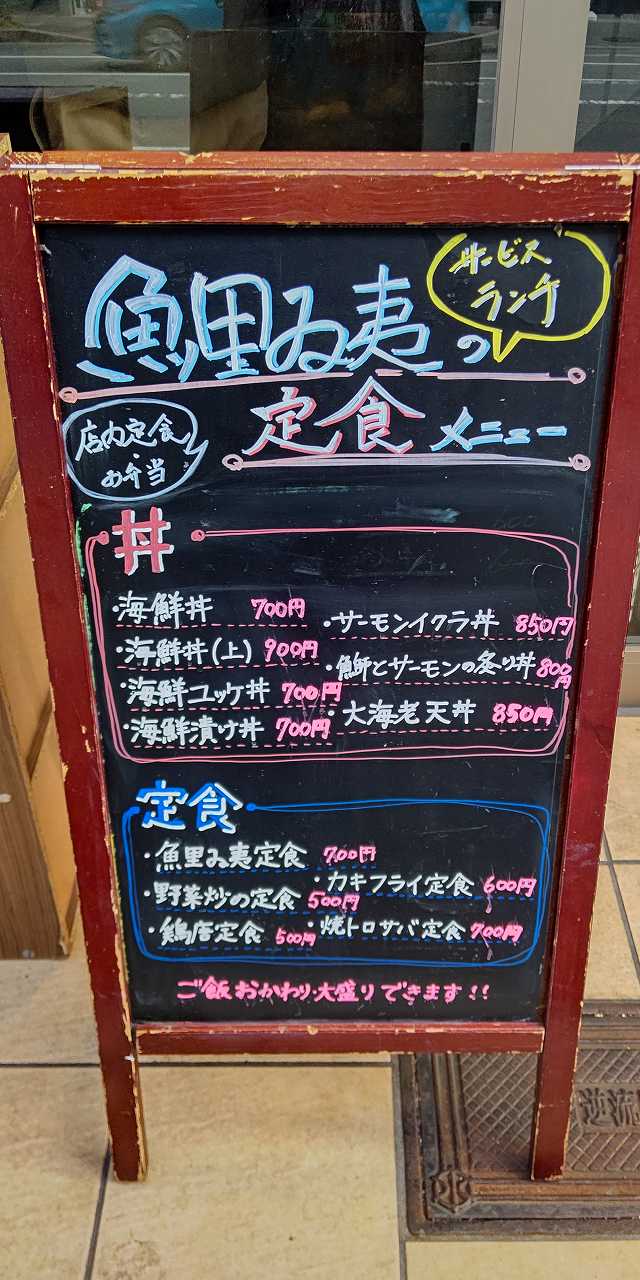 サービス
ランチ
魚里ゐ夷の
定食メニュー
店内定食
・
お弁当
丼
・海鮮丼 700円
・海鮮丼(上) 900円
・海鮮ユッケ丼 700円
・海鮮漬け丼 700円
・サーモンイクラ丼 850円
・鰤とサーモンの炙り丼 800円
・大海老天丼 850円
定食
・魚里ゐ夷定食 700円
・野菜炒の定食 500円
・鶏唐定食 500円
・カキフライ定食 600円
・焼トロサバ定食 700円
ご飯おかわり大盛りできます!!
逆流